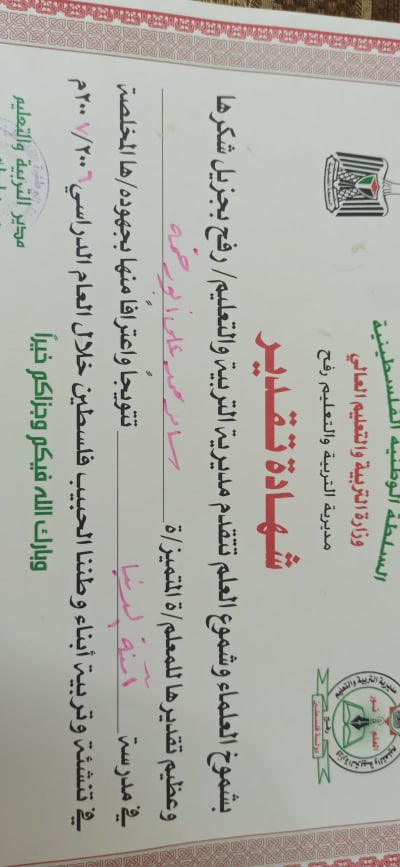 السلطة الوطنية الفلسطينية
وزارة التربية والتعليم العالي
مديرية التربية والتعليم رفح
مديرية التربية والتعليم
نور العلم
رفح
دولة فلسطين
شهادة تقدير
بشموخ العلماء وشموع العلم تتقدم مديرية التربية والتعليم/ رفح بجزيل شكرها
وعظيم تقديرها للمعلم/ة المتميز/ة محمد علي أبو
في مدرسة آمنة تتويجاً واعترافاً منها بجهوده/ها المخلصة
في تنشئة وتربية أبناء وطننا الحبيب فلسطين خلال العام الدراسي ٢٠٠٦/٢٠٠٧م
وبارك الله فيكم وجزاكم خيراً
مدير التربية والتعليم